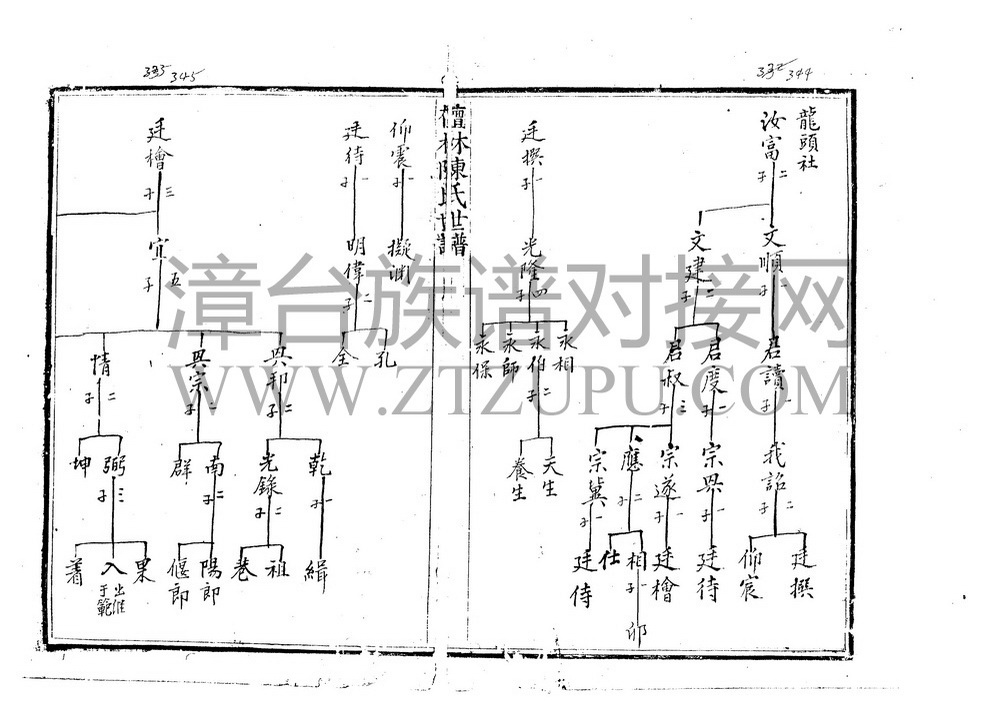 332 344
龍頭社
汝富 二子
文順 一子
文建 二子
君讀 一子
君度 一子
君叔 三子
我詔 二子
宗興 一子
宗遂 一子
應 二子
宗冀 一子
廷撰
仰宸
廷待
廷檜
相 一子
仕
廷侍
卯
廷撰 一子
光隆 四子
永相
永伯 二子
永師
永保
天生
養生
檀林陳氏世譜
333 345
仰震 一子
擬淵
廷待 一子
明偉 二子
孔
全
廷檜 三子
宜 五子
興邦 二子
興宗 一子
情 二子
乾 一子
光錄 二子
南 二子
群
弼 三子
坤
緝
祖
巷
陽郎
偃郎
果
入
着
漳台族谱对接网
WWW.ZTZUPU.COM